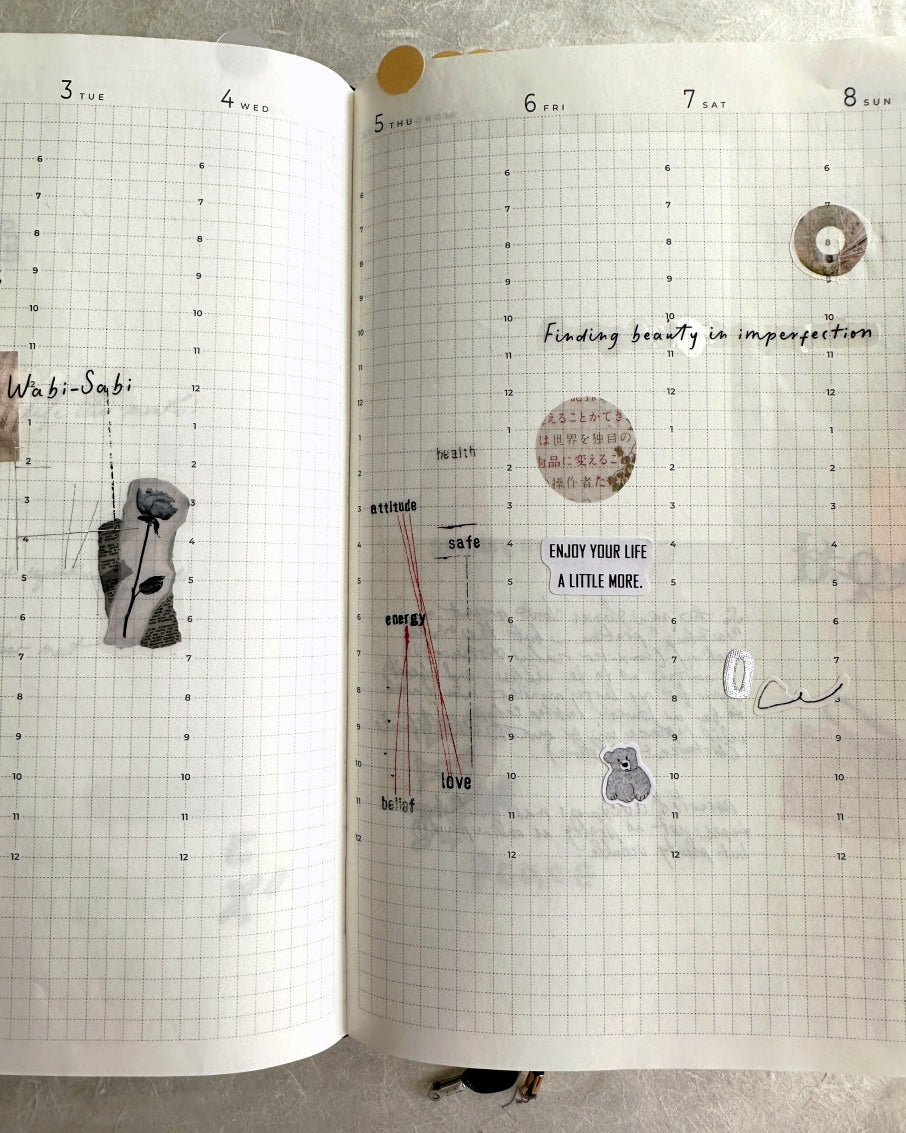 3 TUE
4 WED
5 THU
6 FRI
7 SAT
8 SUN
6
7
8
9
10
11
2
3
4
5
6
7
8
9
10
11
12
6
7
8
9
10
11
12
1
2
3
4
5
6
7
8
9
10
11
12
Wabi-Sabi
6
7
8
9
10
11
12
1
2
3
4
5
6
7
8
9
10
11
12
health
attitude
safe
energy
love
belief
6
7
8
9
10
11
12
1
2
3
4
5
6
7
8
9
10
11
12
Finding beauty in imperfection
えることができ
は世界を独自の
品に変えるこ
操作者た
ENJOY YOUR LIFE
A LITTLE MORE.
6
7
8
9
10
11
12
1
2
3
4
5
6
7
8
9
10
11
12
0
6
7
8
9
10
11
12
1
2
3
4
5
6
7
8
9
10
11
12